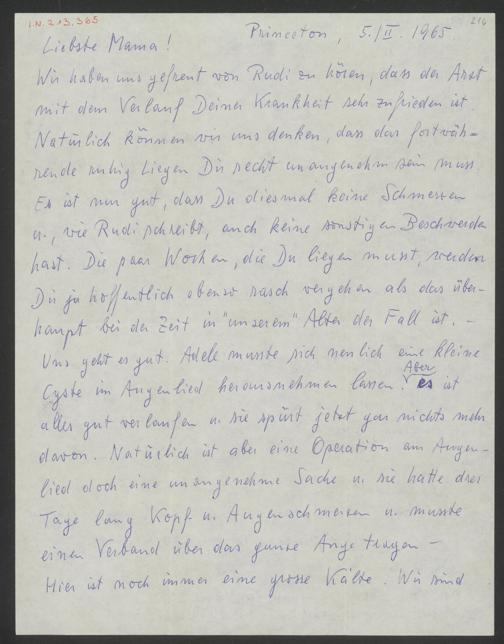 I.N. 213.365
214
Princeton, 5./II. 1965
Liebste Mama!
Wir haben uns gefreut von Rudi zu hören, dass der Arzt
mit dem Verlauf Deiner Krankheit sehr zufrieden ist.
Natürlich können wir uns denken, dass das fortwäh-
rende ruhig Liegen Dir recht unangenehm sein muss.
Es ist nur gut, dass Du diesmal keine Schmerzen
u., wie Rudi schreibt, auch keine sonstigen Beschwerden
hast. Die paar Wochen, die Du liegen musst, werden
Dir ja hoffentlich ebenso rasch vergehen als das über-
haupt bei der Zeit in "unserem" Alter der Fall ist. –
Uns geht es gut. Adele musste sich neulich eine kleine
Cyste im Augenlied herausnehmen lassen. Aber es ist
alles gut verlaufen u. sie spürt jetzt gar nichts mehr
davon. Natürlich ist aber eine Operation am Augen-
lied doch eine unangenehme Sache u. sie hatte drei
Tage lang Kopf- u. Augenschmerzen u. musste
einen Verband über das ganze Auge tragen –
Hier ist noch immer eine grosse Kälte. Wir sind